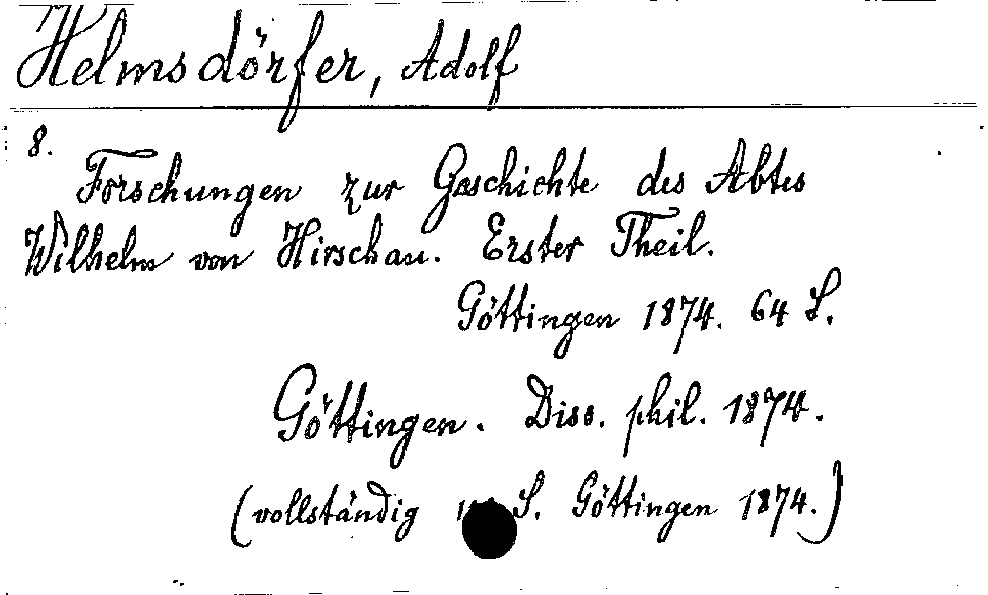 Helmsdörfer, Adolf
8.
Forschungen zur Geschichte des Abtes
Wilhelm von Hirschau. Erster Theil.
Göttingen 1874. 64 S.
Göttingen. Diss. phil. 1874.
(vollständig S. Göttingen 1874.)